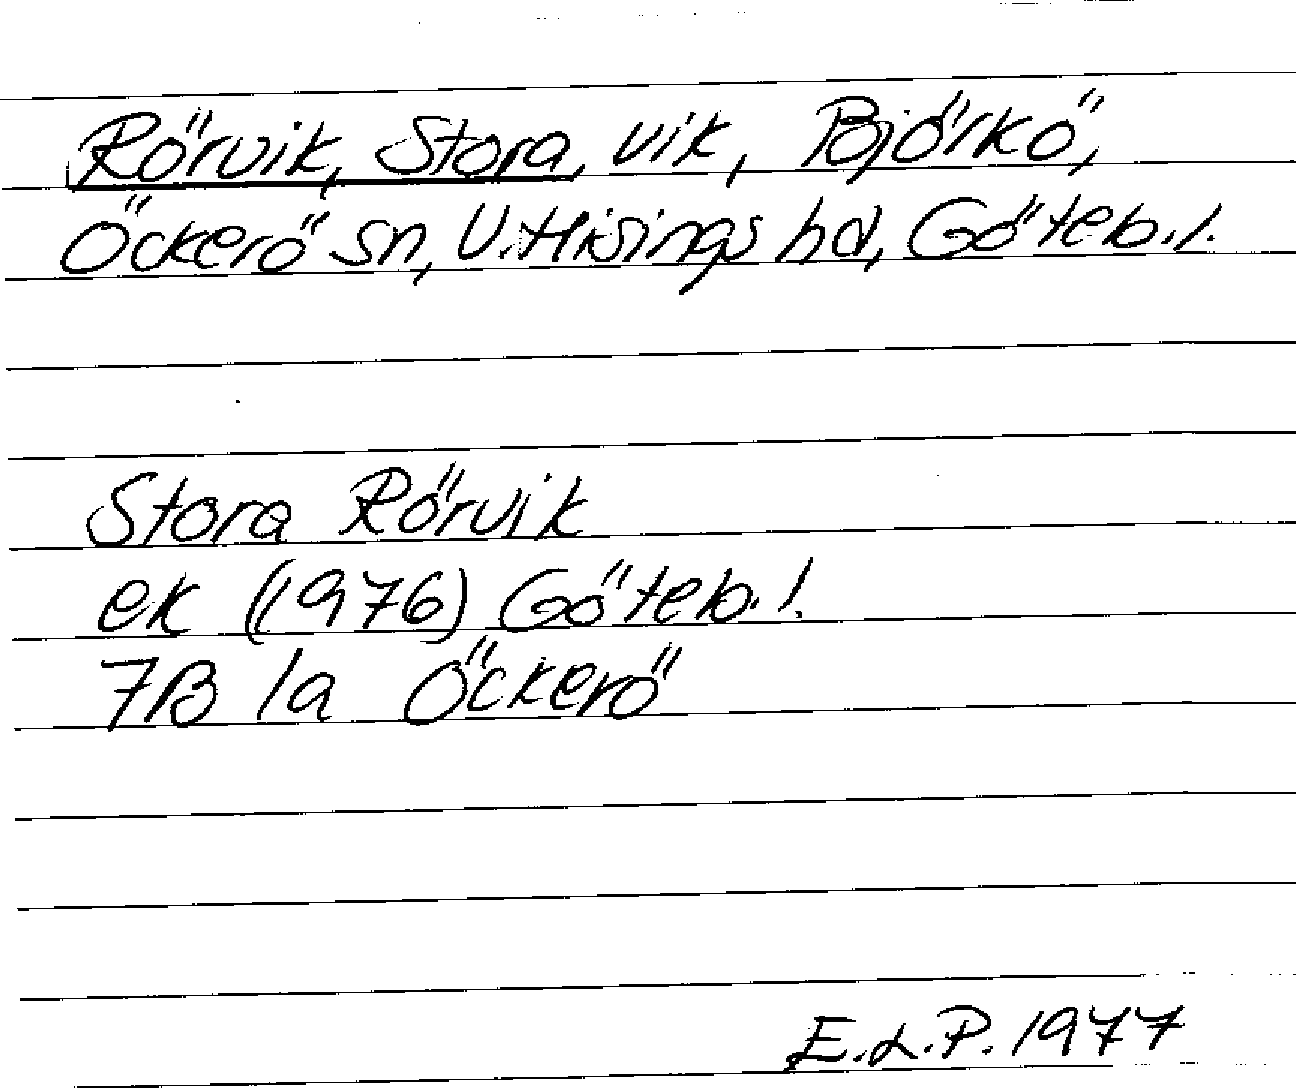 Rörvik, Stora, vik, Björkö,
Öckerö sn, V. Hisings hd, Göteb. l.
Stora Rörvik
ek (1976) Göteb. l.
7B 1a Öckerö
E.L.P. 1977